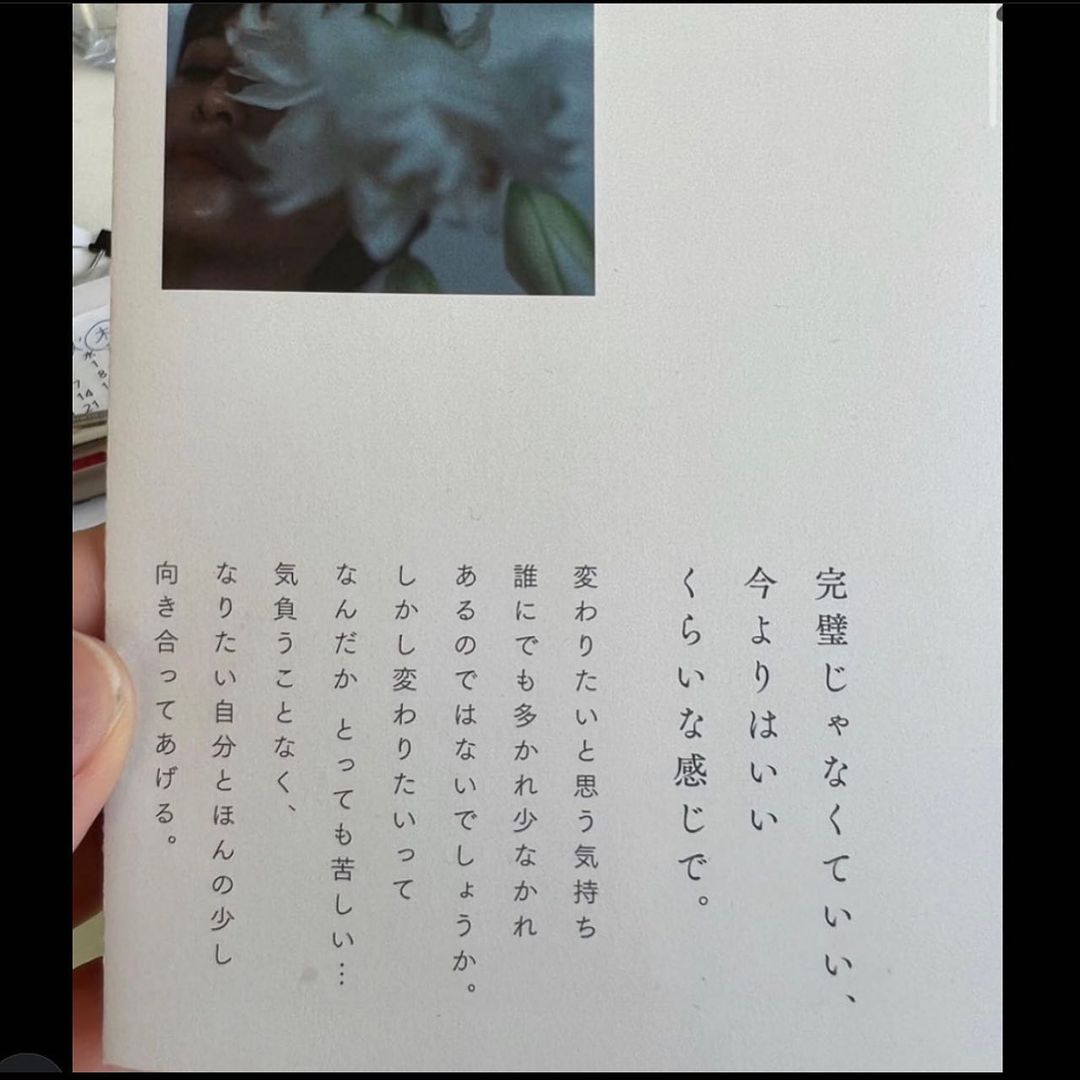 完璧じゃなくていい、
今よりはいい
くらいな感じで。
変わりたいと思う気持ち
誰にでも多かれ少なかれ
あるのではないでしょうか。
しかし変わりたいって
なんだか とっても苦しい…
気負うことなく、
なりたい自分とほんの少し
向き合ってあげる。
木
水
1
8
7
14
21